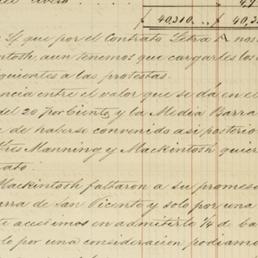 $ 40,310..
Y que por el Contrato Letra A nos
tosh, aun tenemos que cargarles los
siguientes a las protestas.
encia entre el valor que se da en el
del 20 por biento, y la Media Barra
e de haberse convenido asi posterio
tres Manning y Mackintosh quier
rato.
Mackintosh faltaron a su promesa
rra de San Vicente y solo por una
te accesimos en admitirle 1/4 de ba
lo por una consideracion podiamos